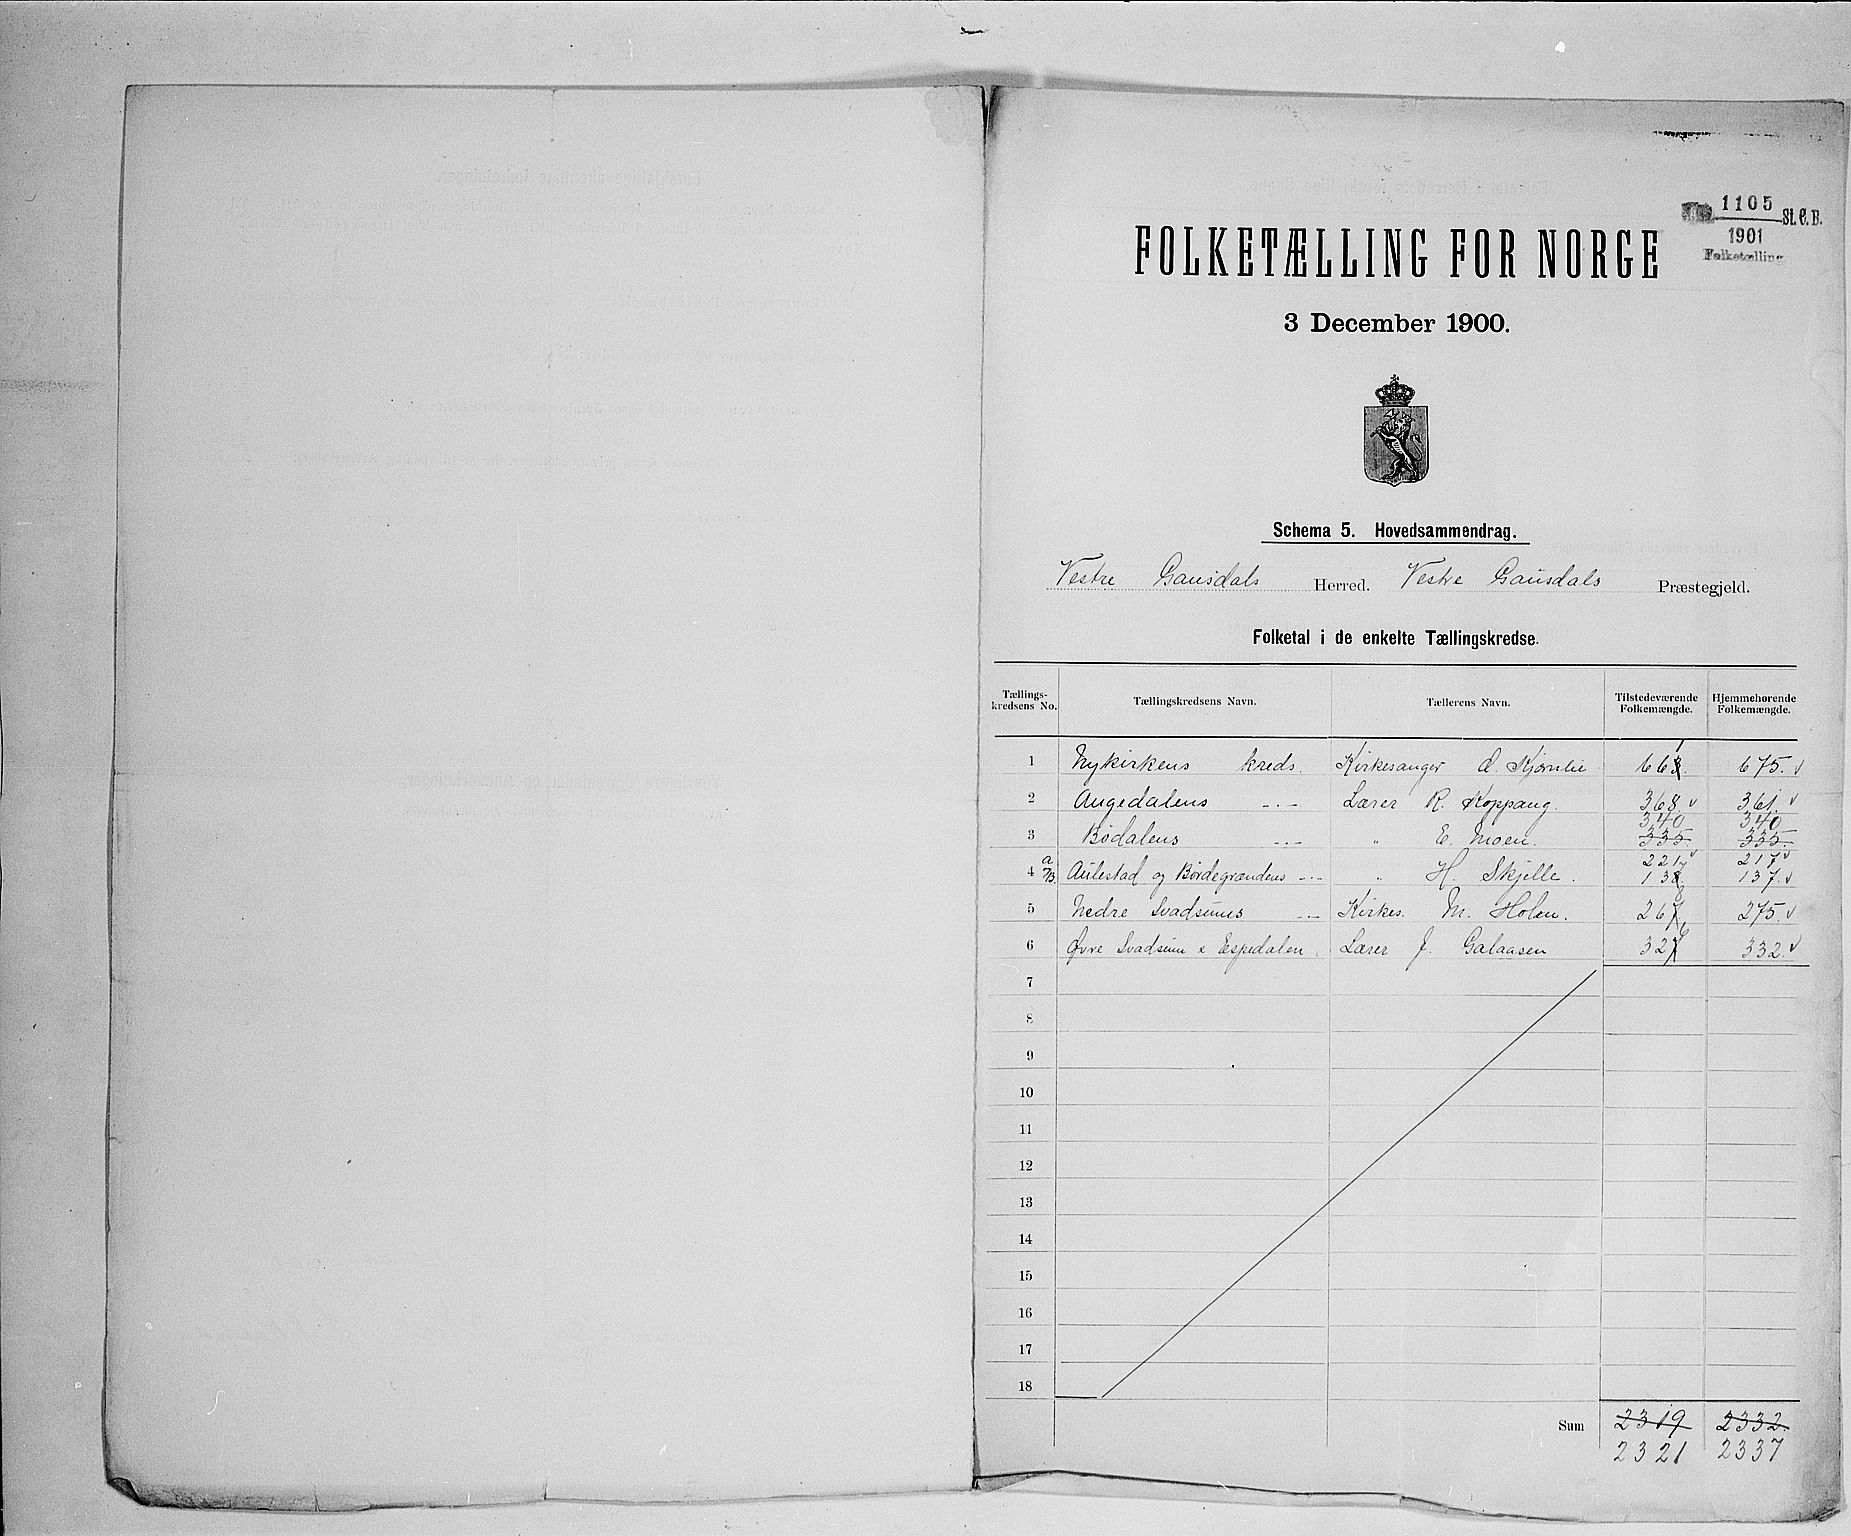 1105
St. C. B.
1901
Folketælling
FOLKETÆLLING FOR NORGE
3 December 1900.
Schema 5. Hovedsammendrag.
Vestre Gausdals Herred. Vestre Gausdals Præstegjeld.
Folketal i de enkelte Tællingskredse.
Tællings-kredsens No. Tællingskredsens Navn. Tællerens Navn. Tilstedeværende Folkemængde. Hjemmehørende Folkemængde.
1 Nykirkens kreds. Kirkesanger O. Kjørnlie 661 675.
2 Augedalens -.- Lærer R. Koppang. 368. 361.
340 340
3 Bødalens -.- " E. Moen. 335 335.
a 221 217
4 B. Aulestad og Børdegrændens -.- " H. Skjelle. 138. 137.
5 Nedre Svadsums -.- Kirkes. M. Holen. 267 275.
6 Øvre Svadsum & Espedalen. Lærer J. Galaasen 327 332.
7
8
9
10
11
12
13
14
15
16
17
18
Sum 2319 2332.
2321 2337